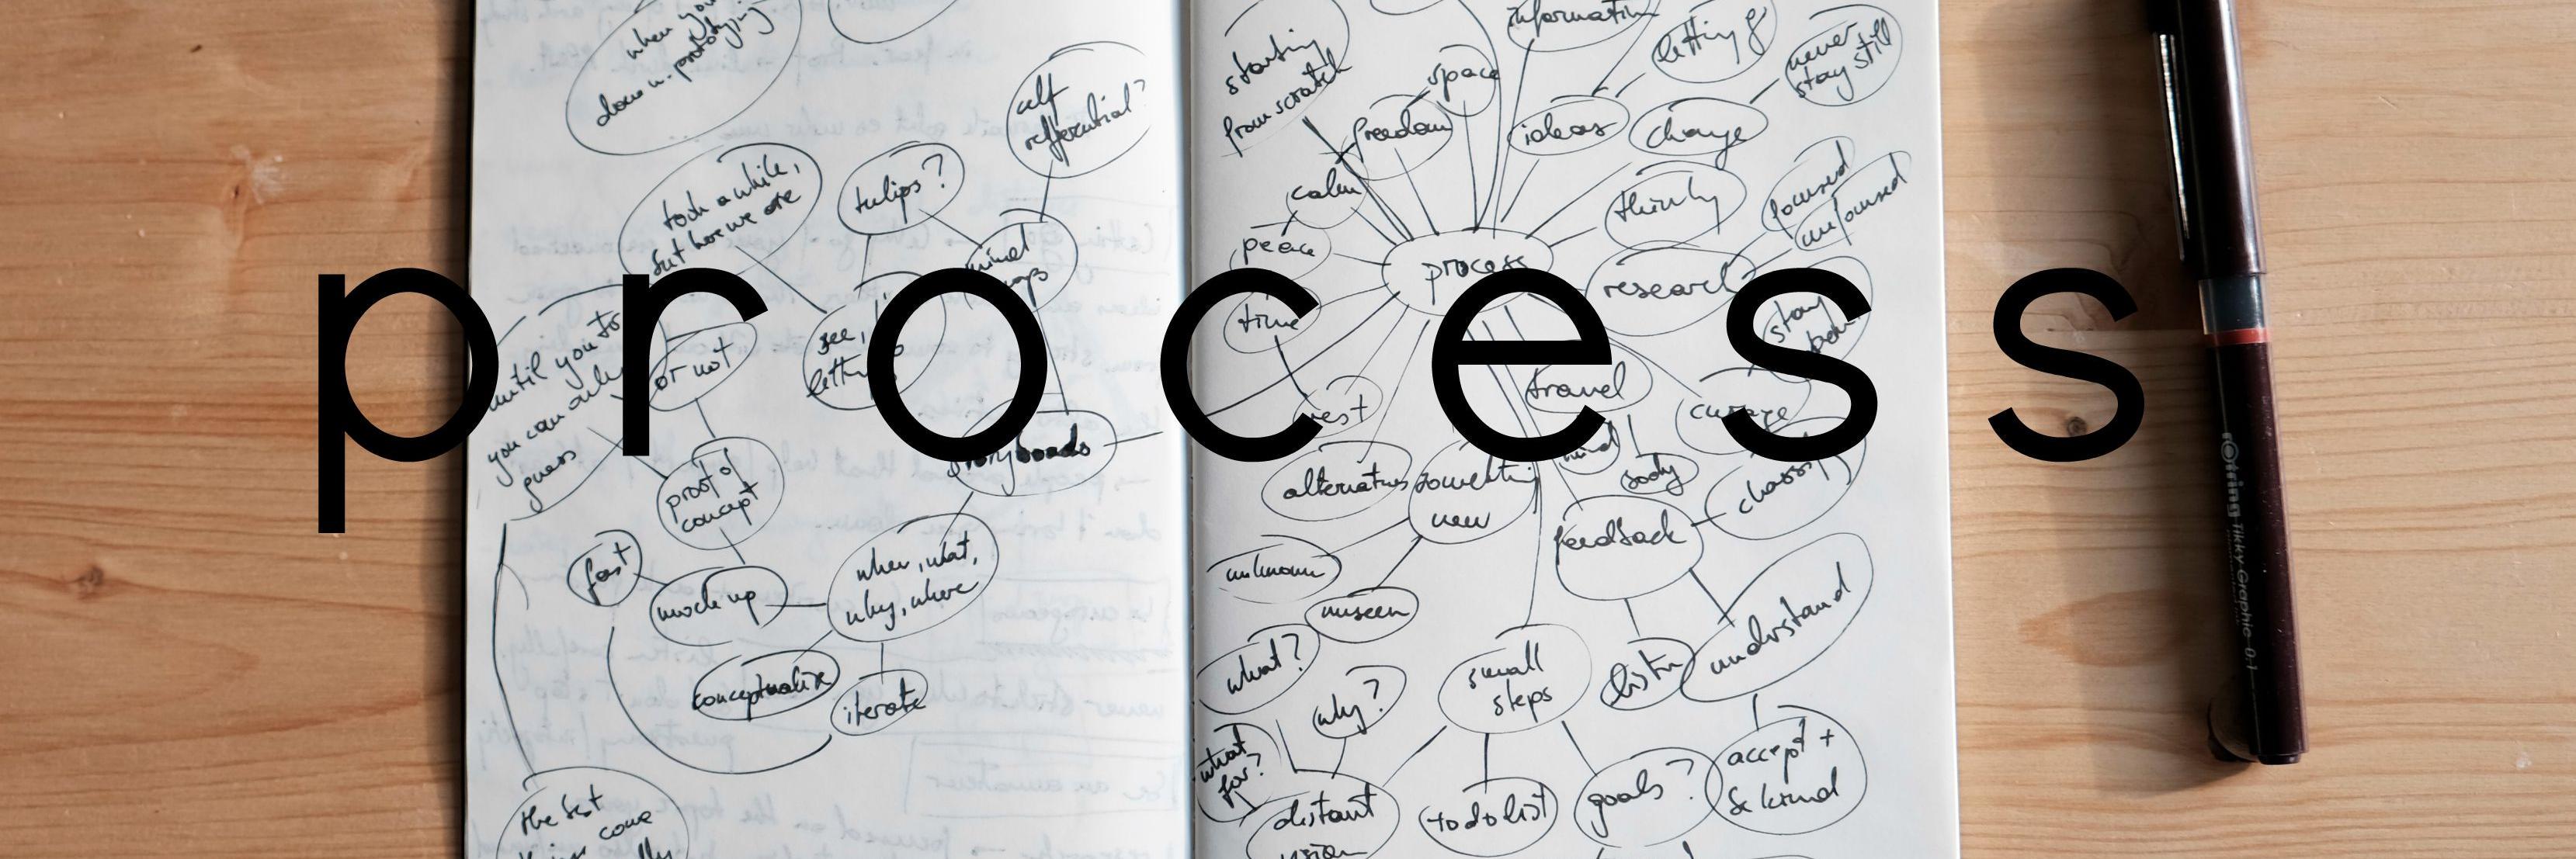 process
when you
down w. prototyping
self
refferential?
took a while,
but here we are
tulips?
mind
maps
until you try
you can only
guess
or not
see, I
letting
storyboads
proof of
concept
fast
mock up
when, what,
why, where
conceptualize
iterate
the best
come
starting
from scratch
space
freedom
information
letting g
never
stay still
ideas
change
calm
thinking
focused
unfocused
peace
process
research
time
stay
open
rest
travel
mind
body
alternatives
something
new
feedback
classify
unknown
unseen
understand
what?
why?
small
steps
listen
what
for?
distant
vision
to do list
goals?
accept +
be kind
rotring Tikky Graphic 0.1